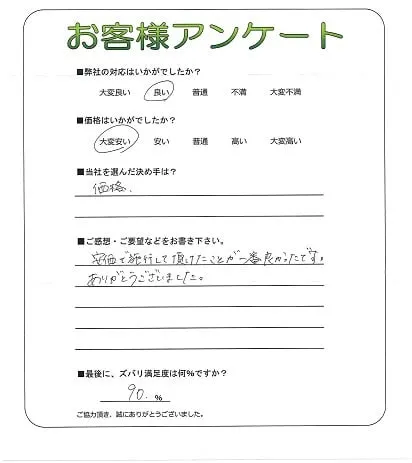 お客様アンケート
■弊社の対応はいかがでしたか?
大変良い 良い 普通 不満 大変不満
■価格はいかがでしたか?
大変安い 安い 普通 高い 大変高い
■当社を選んだ決め手は?
価格、
■ご感想・ご要望などをお書き下さい。
安価で施行して頂けたことが一番良かったです。
ありがとうございました。
■最後に、ズバリ満足度は何%ですか?
90. %
ご協力頂き、誠にありがとうございました。